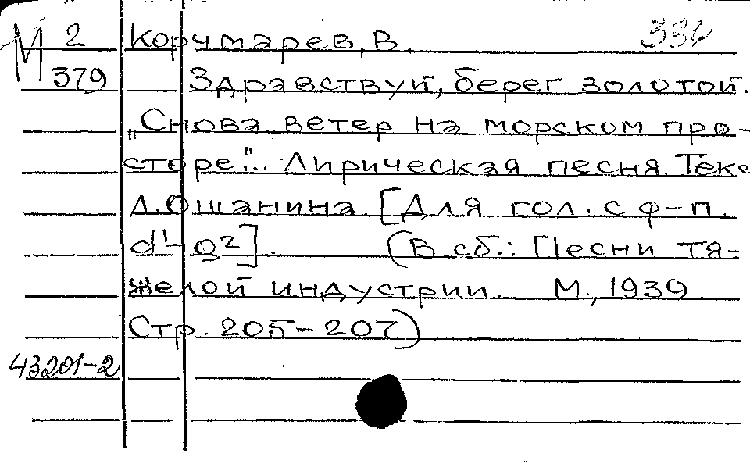 М 2 Корчмарев, В. 334
379 Здравствуй, берег золотой.
„Снова ветер на морском про-
сторе"... Лирическая песня. Текс
Л. Ошанина. [Для гол. с ф-п.
d¹-g²]. (В сб.: Песни тя-
желой индустрии. М., 1939
Стр. 205-207)
43201-2